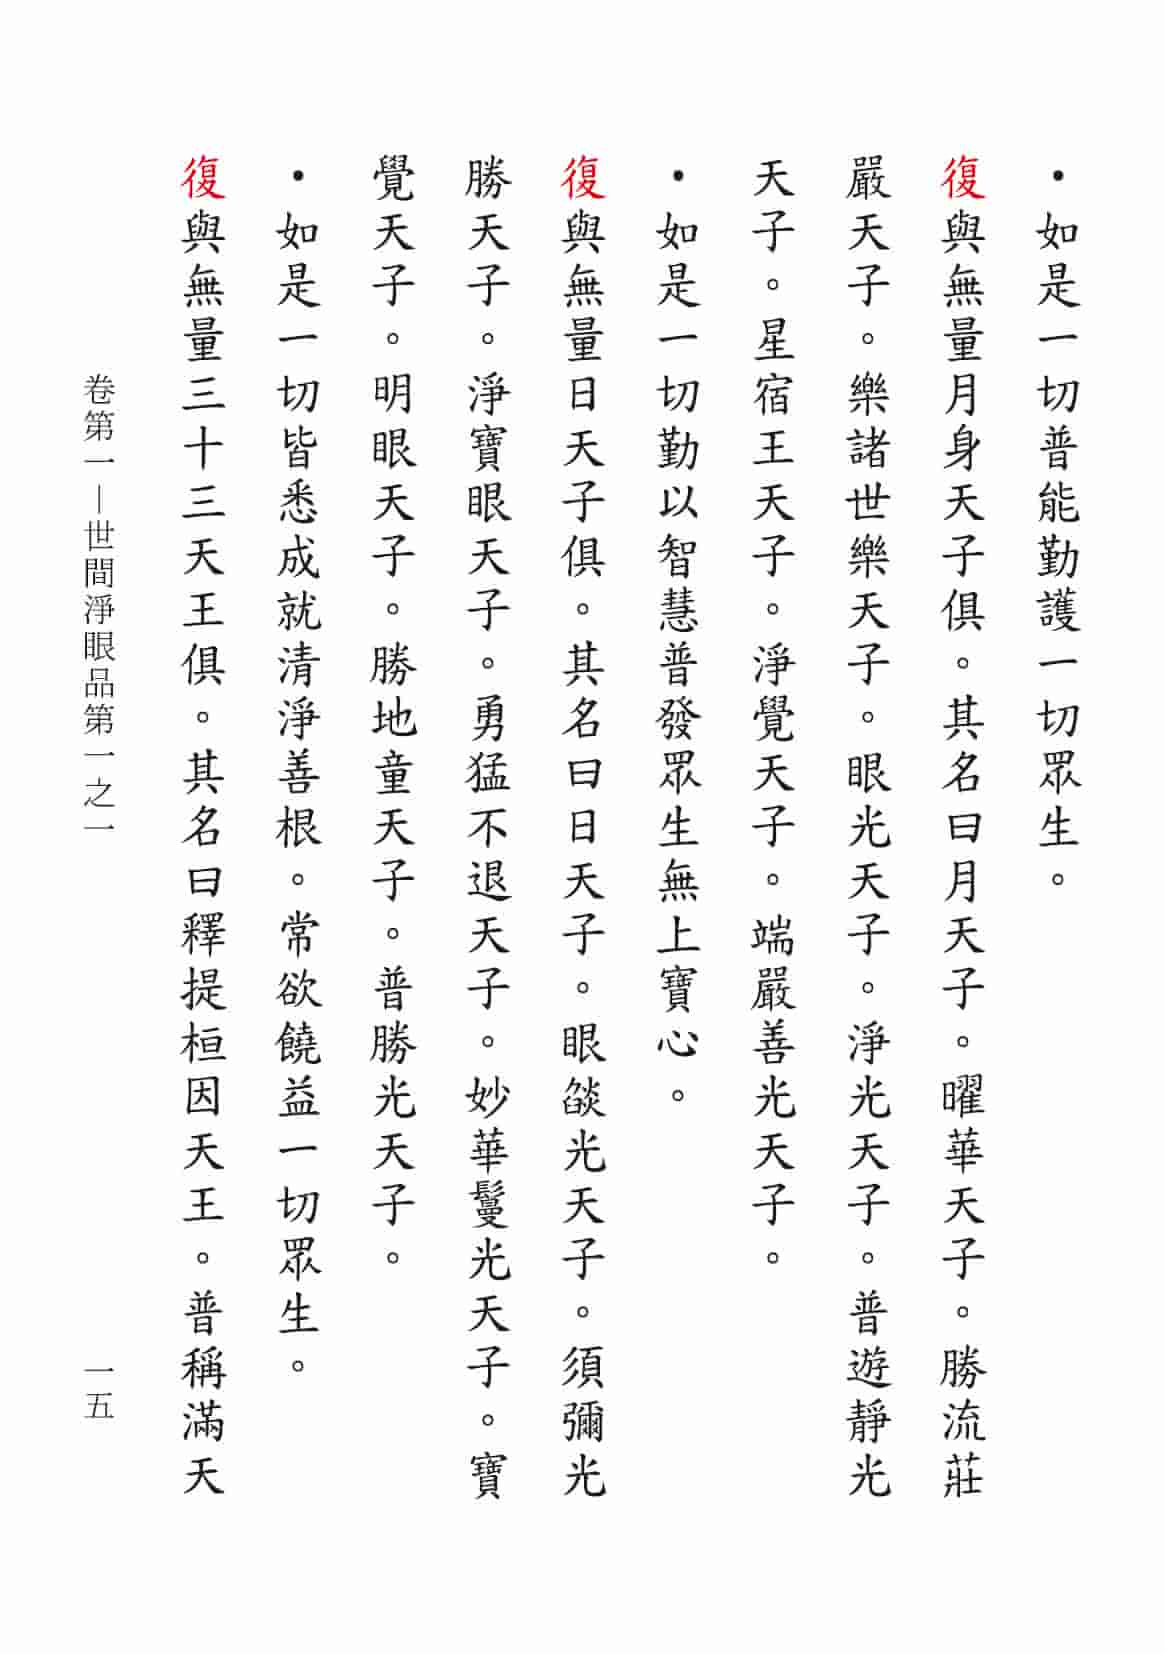 •如是一切普能勤護一切眾生。
復與無量月身天子俱。其名曰月天子。曜華天子。勝流莊
嚴天子。樂諸世樂天子。眼光天子。淨光天子。普遊靜光
天子。星宿王天子。淨覺天子。端嚴善光天子。
•如是一切勤以智慧普發眾生無上寶心。
復與無量日天子俱。其名曰日天子。眼燄光天子。須彌光
勝天子。淨寶眼天子。勇猛不退天子。妙華鬘光天子。寶
覺天子。明眼天子。勝地童天子。普勝光天子。
•如是一切皆悉成就清淨善根。常欲饒益一切眾生。
復與無量三十三天王俱。其名曰釋提桓因天王。普稱滿天
卷第一—世間淨眼品第一之一
一五